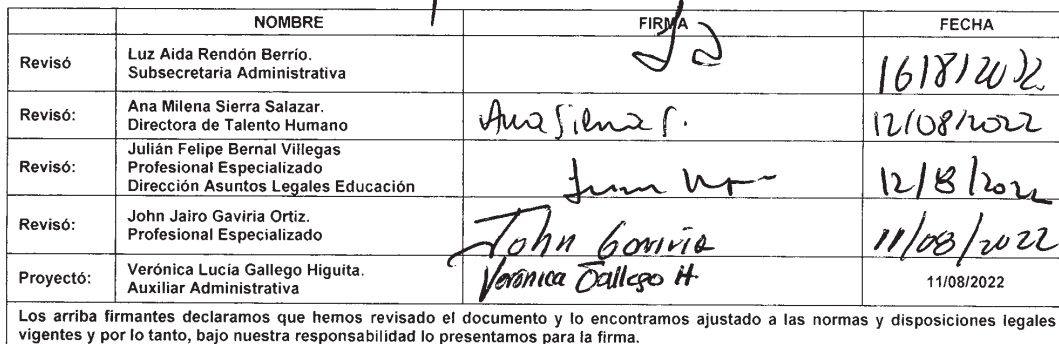 NOMBRE FIRMA FECHA
Revisó Luz Aida Rendón Berrío.
Subsecretaria Administrativa
16/8/2022
Revisó: Ana Milena Sierra Salazar.
Directora de Talento Humano
12/08/2022
Revisó: Julián Felipe Bernal Villegas
Profesional Especializado
Dirección Asuntos Legales Educación
12/8/2022
Revisó: John Jairo Gaviria Ortiz.
Profesional Especializado
John Gaviria 11/08/2022
Proyectó: Verónica Lucía Gallego Higuita.
Auxiliar Administrativa
Verónica Gallego H 11/08/2022
Los arriba firmantes declaramos que hemos revisado el documento y lo encontramos ajustado a las normas y disposiciones legales
vigentes y por lo tanto, bajo nuestra responsabilidad lo presentamos para la firma.